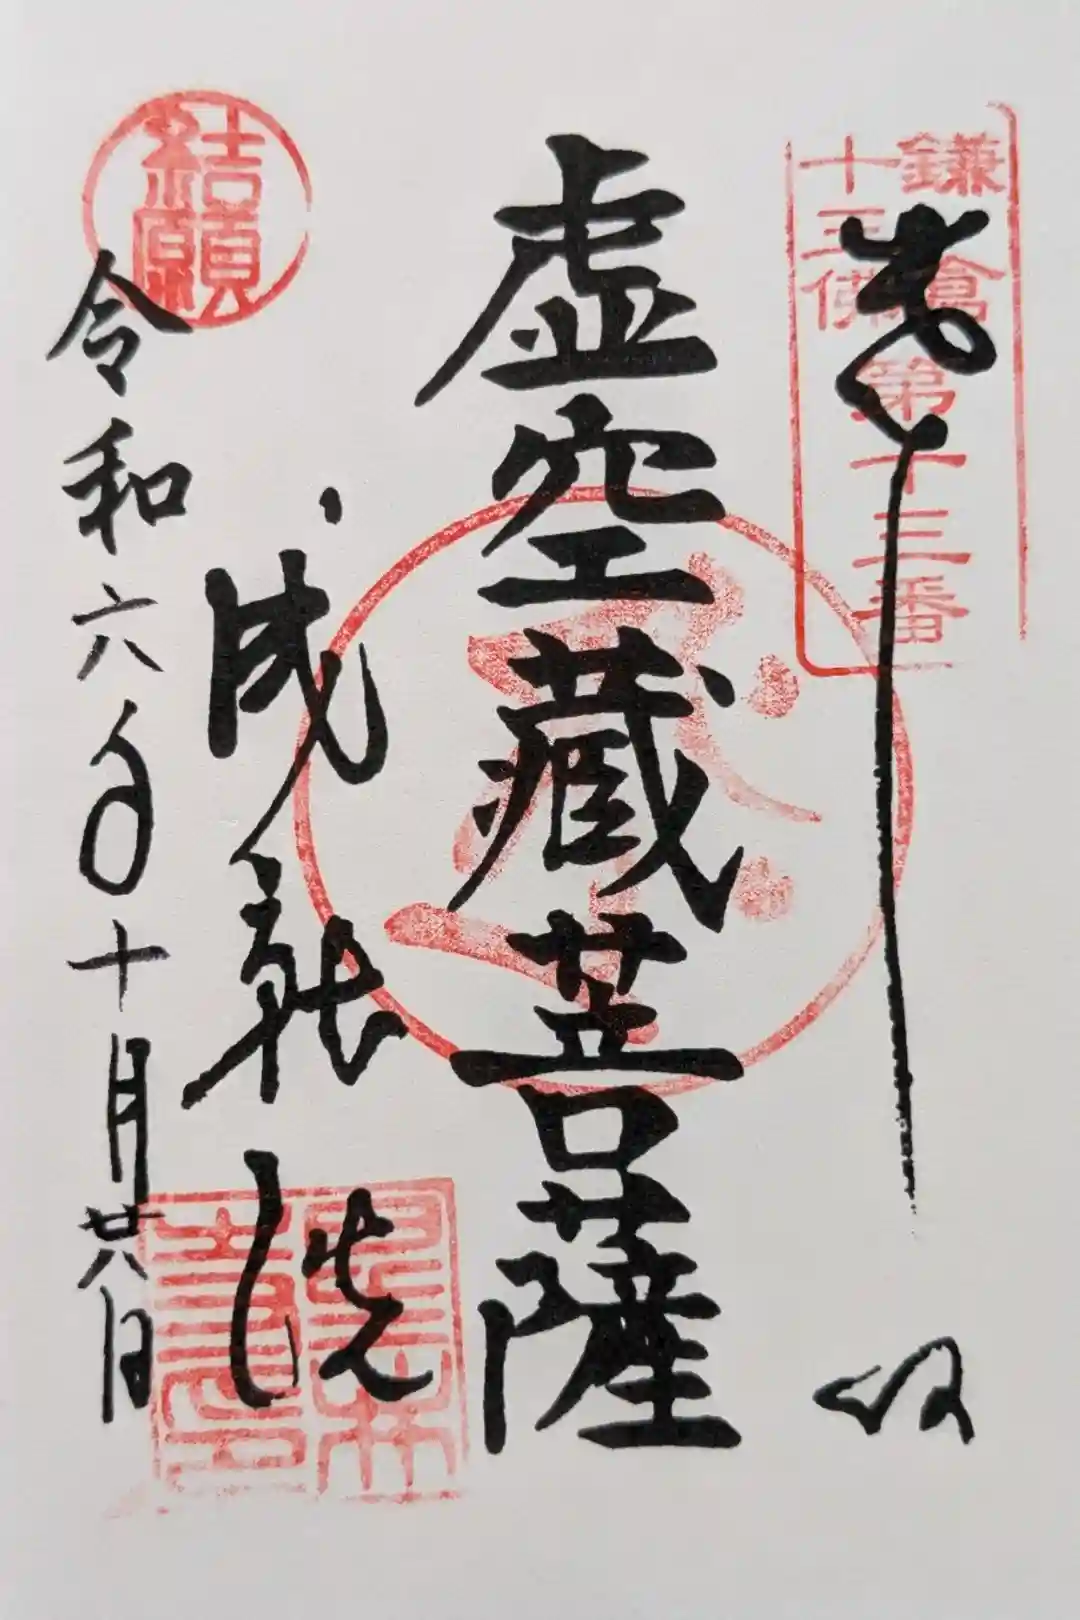 鎌倉
十三佛
第十三番
奉
拝
虚空蔵菩薩
成就院
結願
令和六年十月廿八日